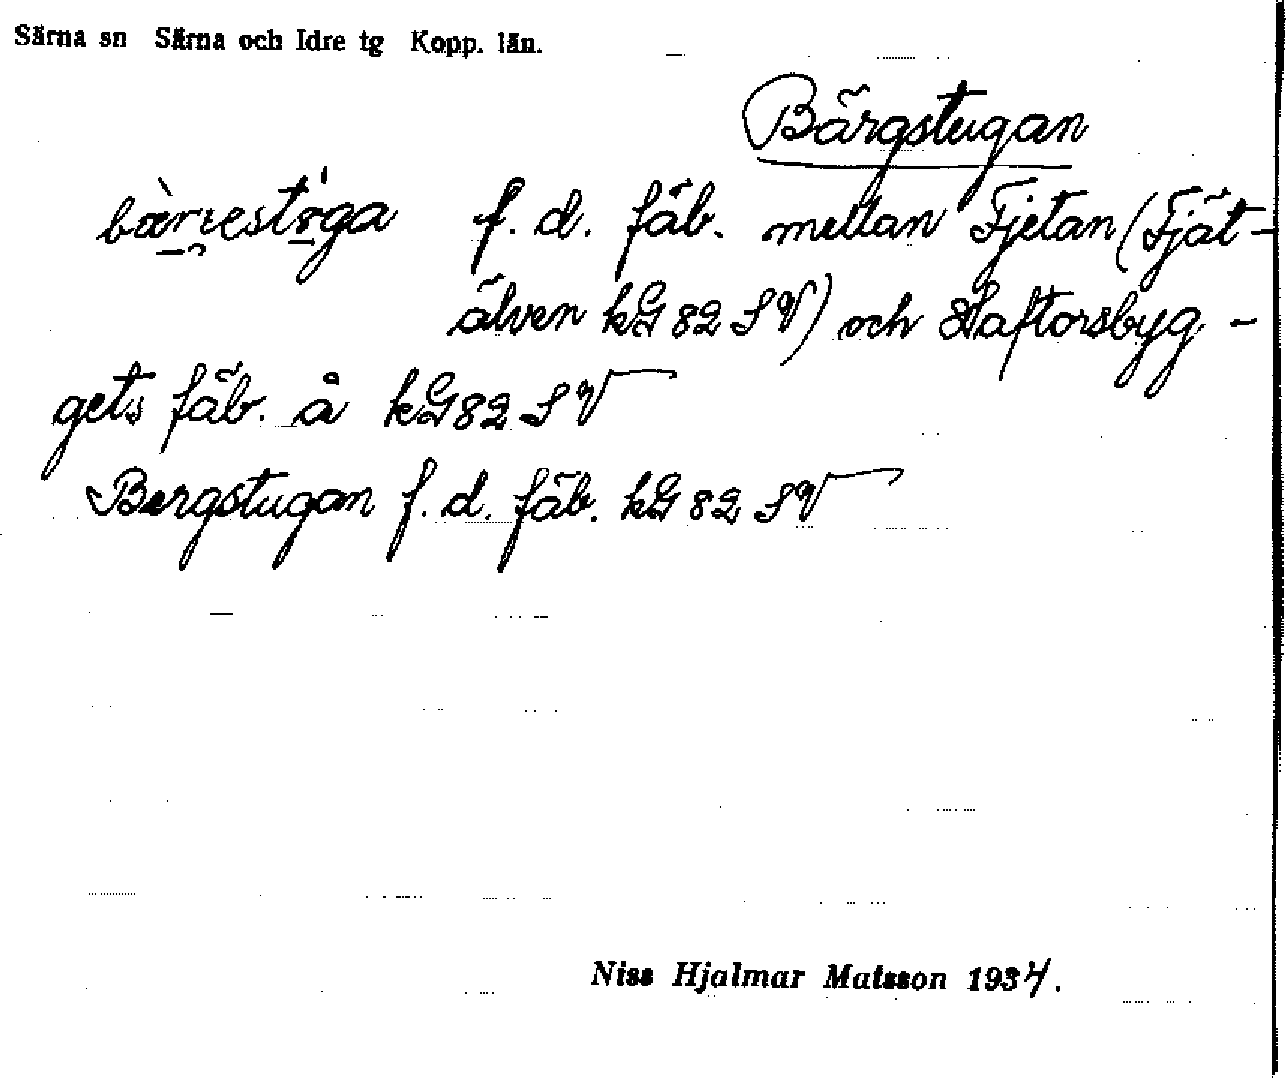 Särna sn Särna och Idre tg Kopp. län.
Bärgstugan
f. d. fäb. mellan Fjetan (Fjät-
älven kG 82 SV) och Haftorsbyg-
gets fäb. å kG 82 SV
Bergstugan f. d. fäb. kG 82 SV
Niss Hjalmar Matsson 1934.